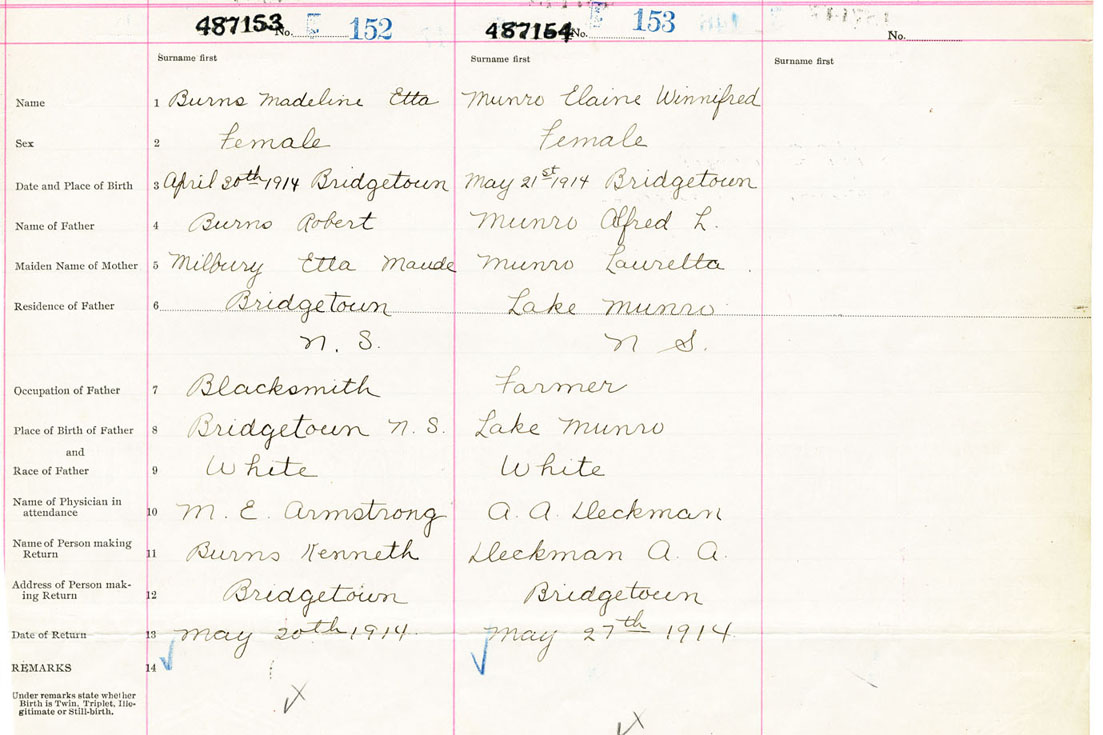 487153 No. E 152 487154 No. E 153 No.
Surname first Surname first Surname first
Name 1 Burns Madeline Etta Munro Elaine Winnifred
Sex 2 Female Female
Date and Place of Birth 3 April 30th 1914 Bridgetown May 21st 1914 Bridgetown
Name of Father 4 Burns Robert Munro Alfred L.
Maiden Name of Mother 5 Milbury Etta Maude Munro Lauretta
Residence of Father 6 Bridgetown Lake Munro
N. S. N S.
Occupation of Father 7 Blacksmith Farmer
Place of Birth of Father 8 Bridgetown N. S. Lake Munro
and
Race of Father 9 White White
Name of Physician in
attendance 10 M. E. Armstrong A. A. Deckman
Name of Person making
Return 11 Burns Kenneth Deckman A. A.
Address of Person mak-
ing Return 12 Bridgetown Bridgetown
Date of Return 13 May 20th 1914 May 27th 1914
REMARKS 14
Under remarks state whether
Birth is Twin, Triplet, Ille-
gitimate or Still-birth.